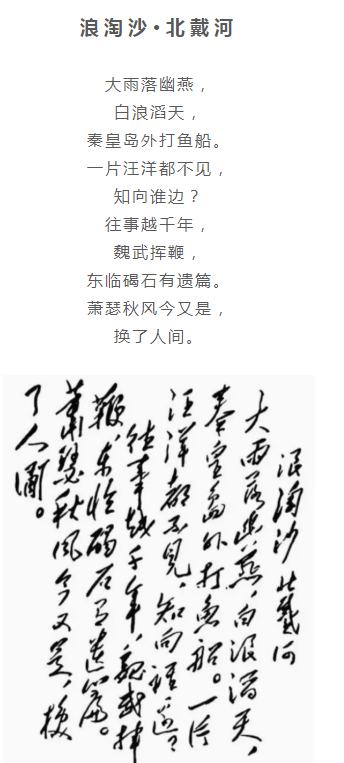 浪淘沙·北戴河
大雨落幽燕，
白浪滔天，
秦皇岛外打鱼船。
一片汪洋都不见，
知向谁边？
往事越千年，
魏武挥鞭，
东临碣石有遗篇。
萧瑟秋风今又是，
换了人间。
浪淘沙 北戴河
大雨落幽燕，白浪滔天，
秦皇岛外打鱼船。一片
汪洋都不见，知向谁边？
往事越千年，魏武挥
鞭，东临碣石有遗篇。
萧瑟秋风今又是，换
了人间。